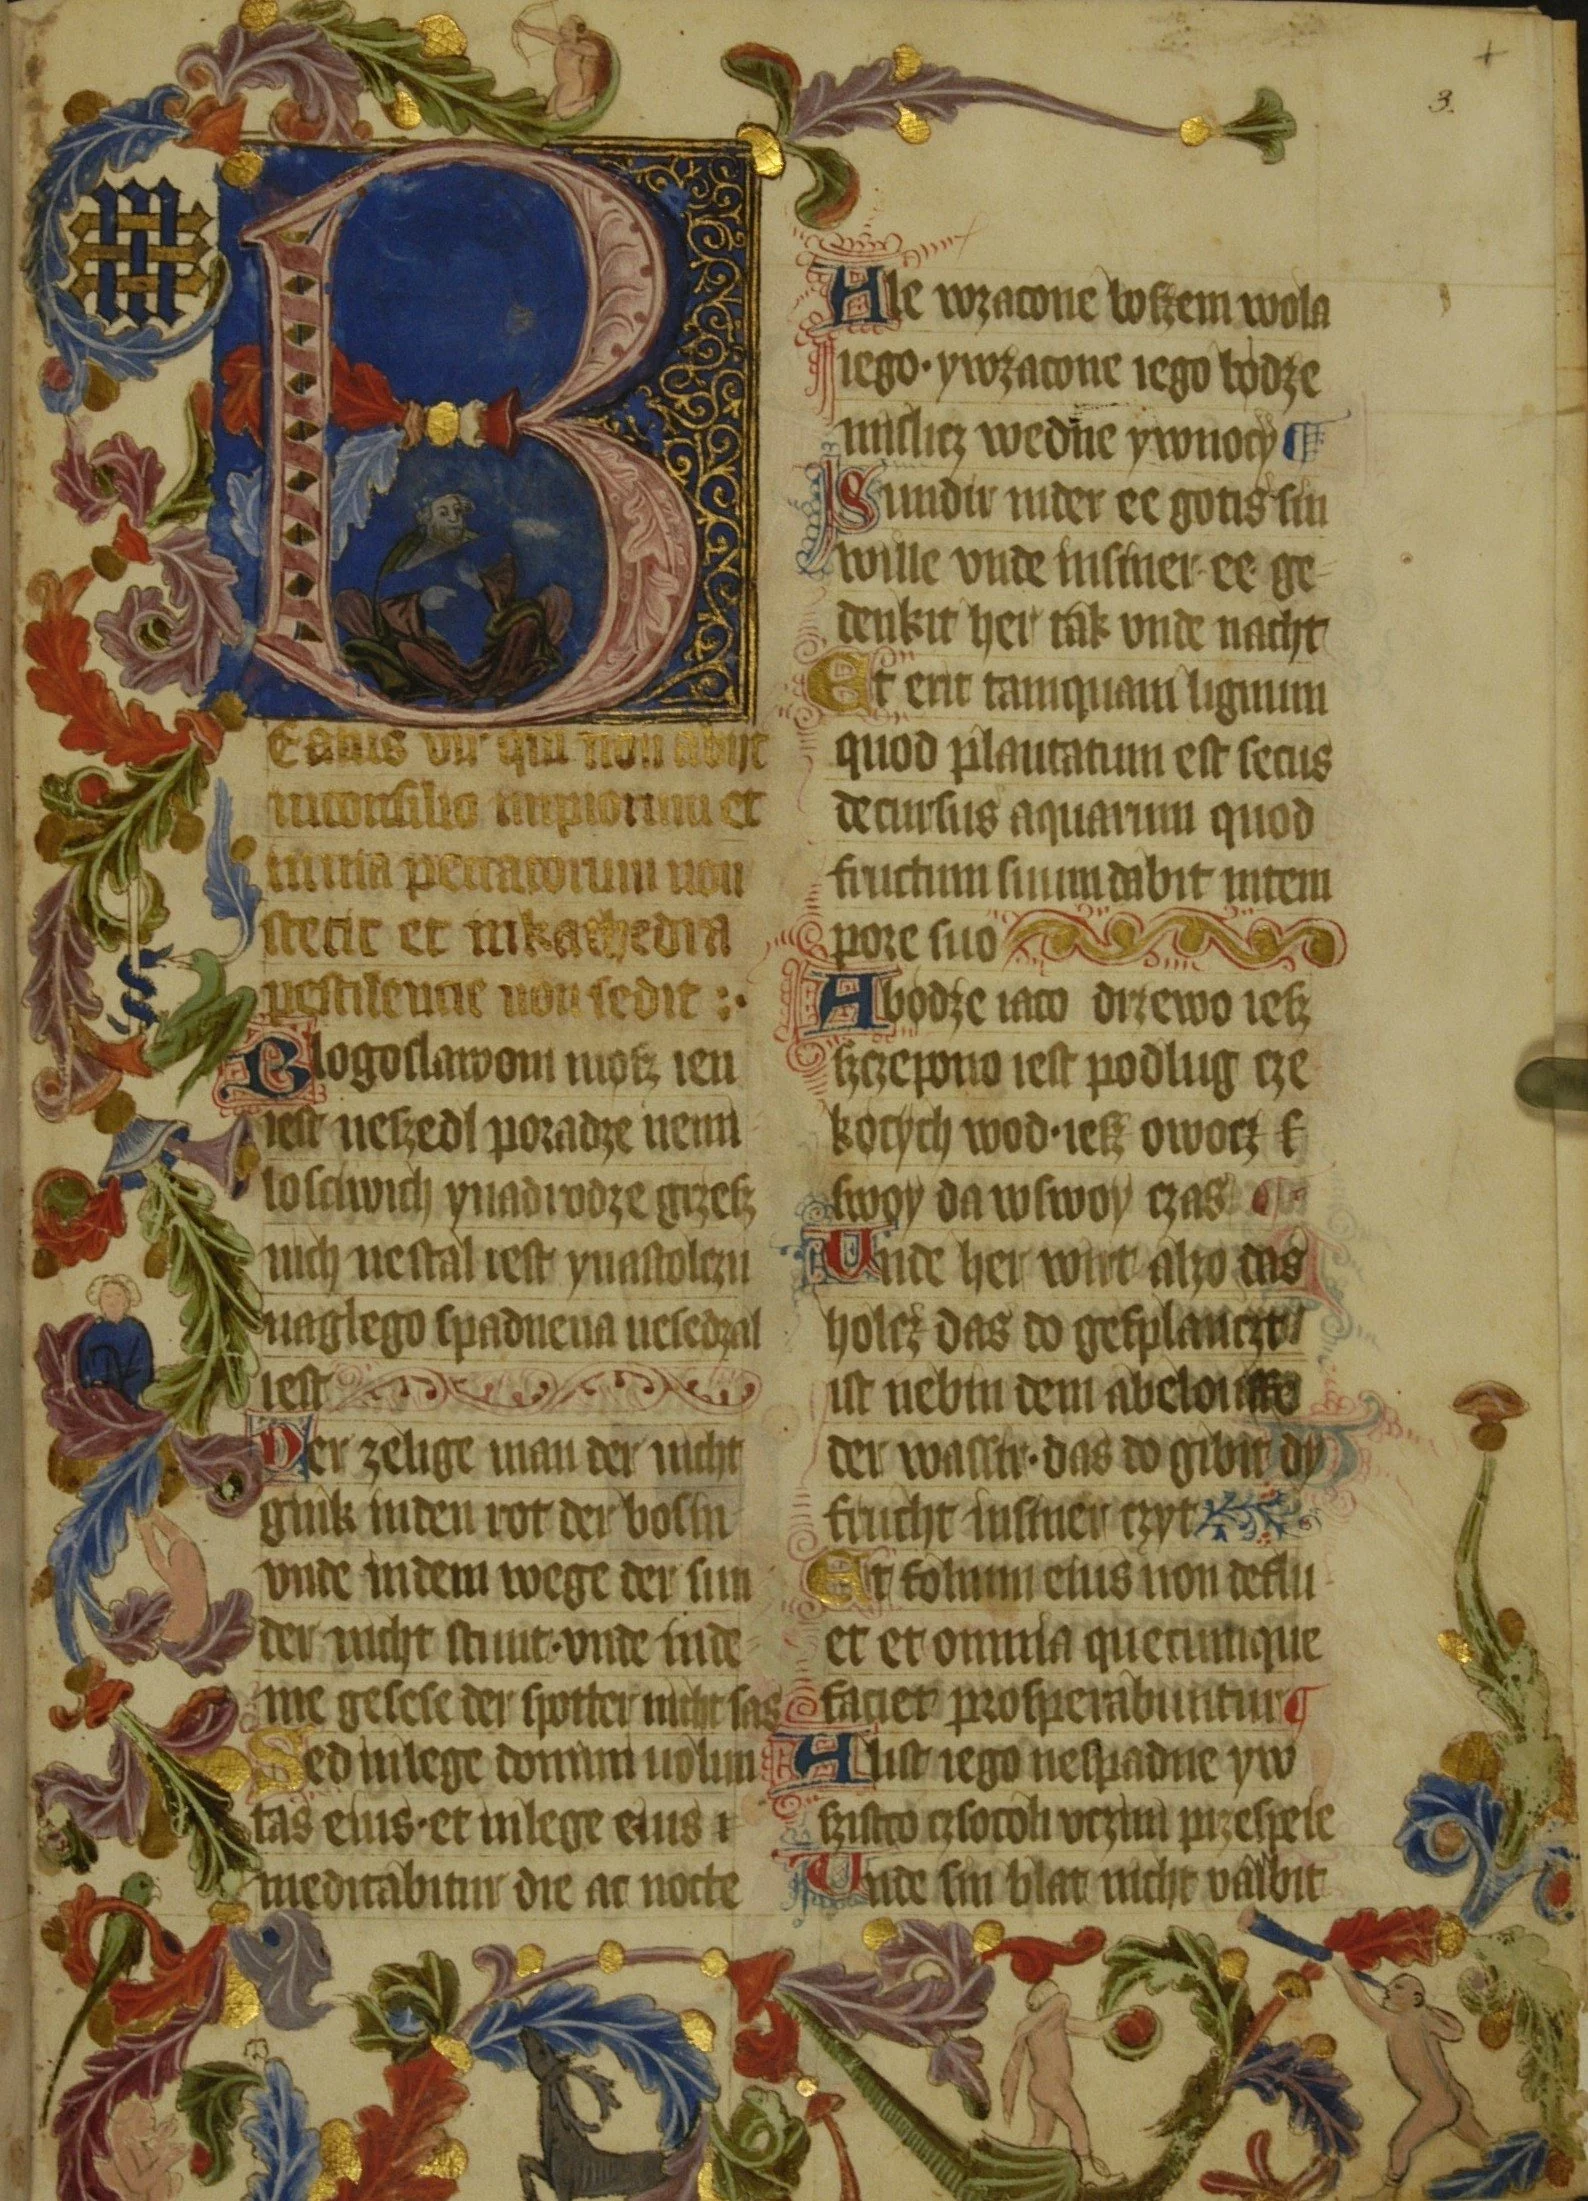 3.
Eatus vir qui non abijt
inconsilio impiorum et
inuia peccatorum non
stetit et inkathedra
pestilencie non sedit :·
Blogoslawoni møsz ien
iest neszedl poradze nemi
losciwich ynadrodze grzesz
nich nestal iest ynastolczu
naglego spadnena nesedzal
iest
Der zelige man der nicht
gink inden rot der bosin
vnde indem wege der sun
der nicht stunt·vnde inde
me gesese der spotter nicht sas
Sed inlege domini uolun
tas eius·et inlege eius
meditabitur die ac nocte
Ale wzacone boszem wola
iego·ywzacone iego bodze
mislicz wedne ywnocy
Sundir inder ee gotis sin
wille vnde insiner ee ge
denkit her tak vnde nacht
Et erit tamquam lignum
quod plantatum est secus
decursus aquarum quod
fructum suum dabit intem
pore suo
A bødze iaco drzewo iesz
szczepono iest podlug cze
køcych wod·iesz owocz
swoy da wswoy czas
Unde her wirt alzo das
holcz das do gesplanczt
ist nebin dem abelouffe
der wassir·das do gibit dy
frucht insiner czyt
Et folium eius non deflu
et et omnia quecumque
faciet prosperabuntur
A list iego nespadne yw
szistco czsocoli vczini przespeie
Unde sin blat nicht valbit